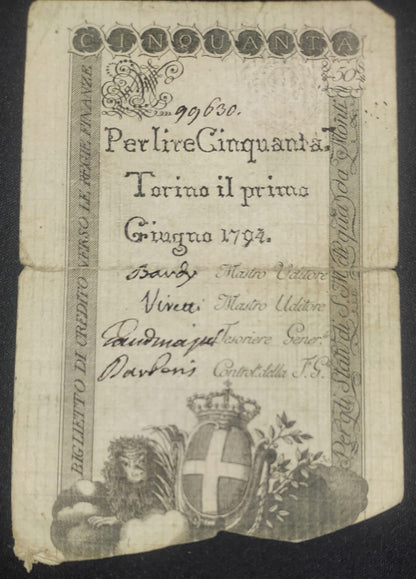 CINQUANTA
50
99630.
Per lire Cinquanta.
Torino il primo
Giugno 1794.
Mastro Uditore
Viretti Mastro Uditore
Tesoriere Gener.
Barberis Control. della T. G.
BIGLIETTO DI CREDITO VERSO LE REGIE FINANZE
Per gli Stati di S. M. di qua da Monti